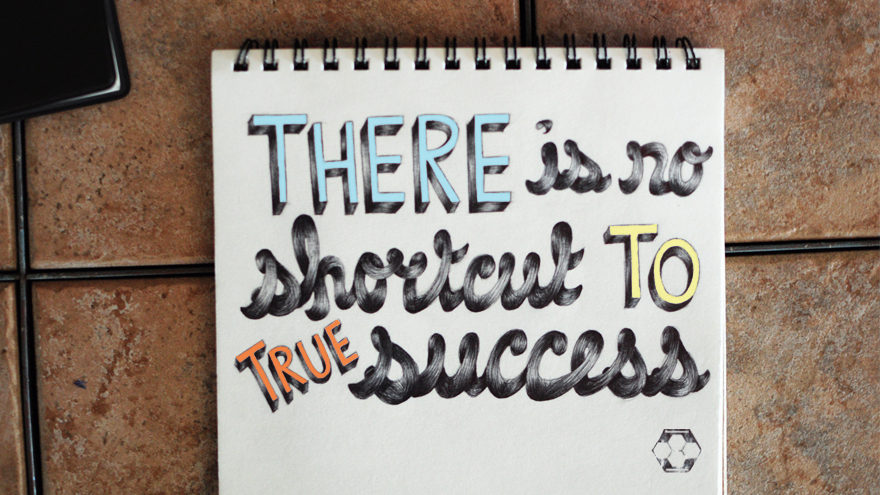 THERE is no
shortcut TO
TRUE success